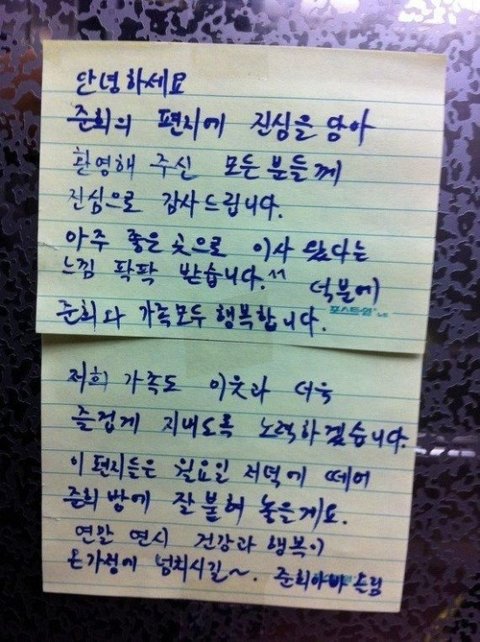 안녕하세요
준희의 편지에 진심을 담아
환영해 주신 모든 분들께
진심으로 감사드립니다.
아주 좋은 곳으로 이사 왔다는
느낌 팍팍 받습니다.^^ 덕분에
포스트-잇
준희과 가족모두 행복합니다.
저희 가족도 이웃과 더욱
즐겁게 지내도록 노력하겠습니다.
이 편지들은 월요일 저녁에 떼어
준희 방에 잘 붙혀 놓을게요.
연말 연시 건강과 행복이
온가정에 넘치시길~. 준희아빠 드림